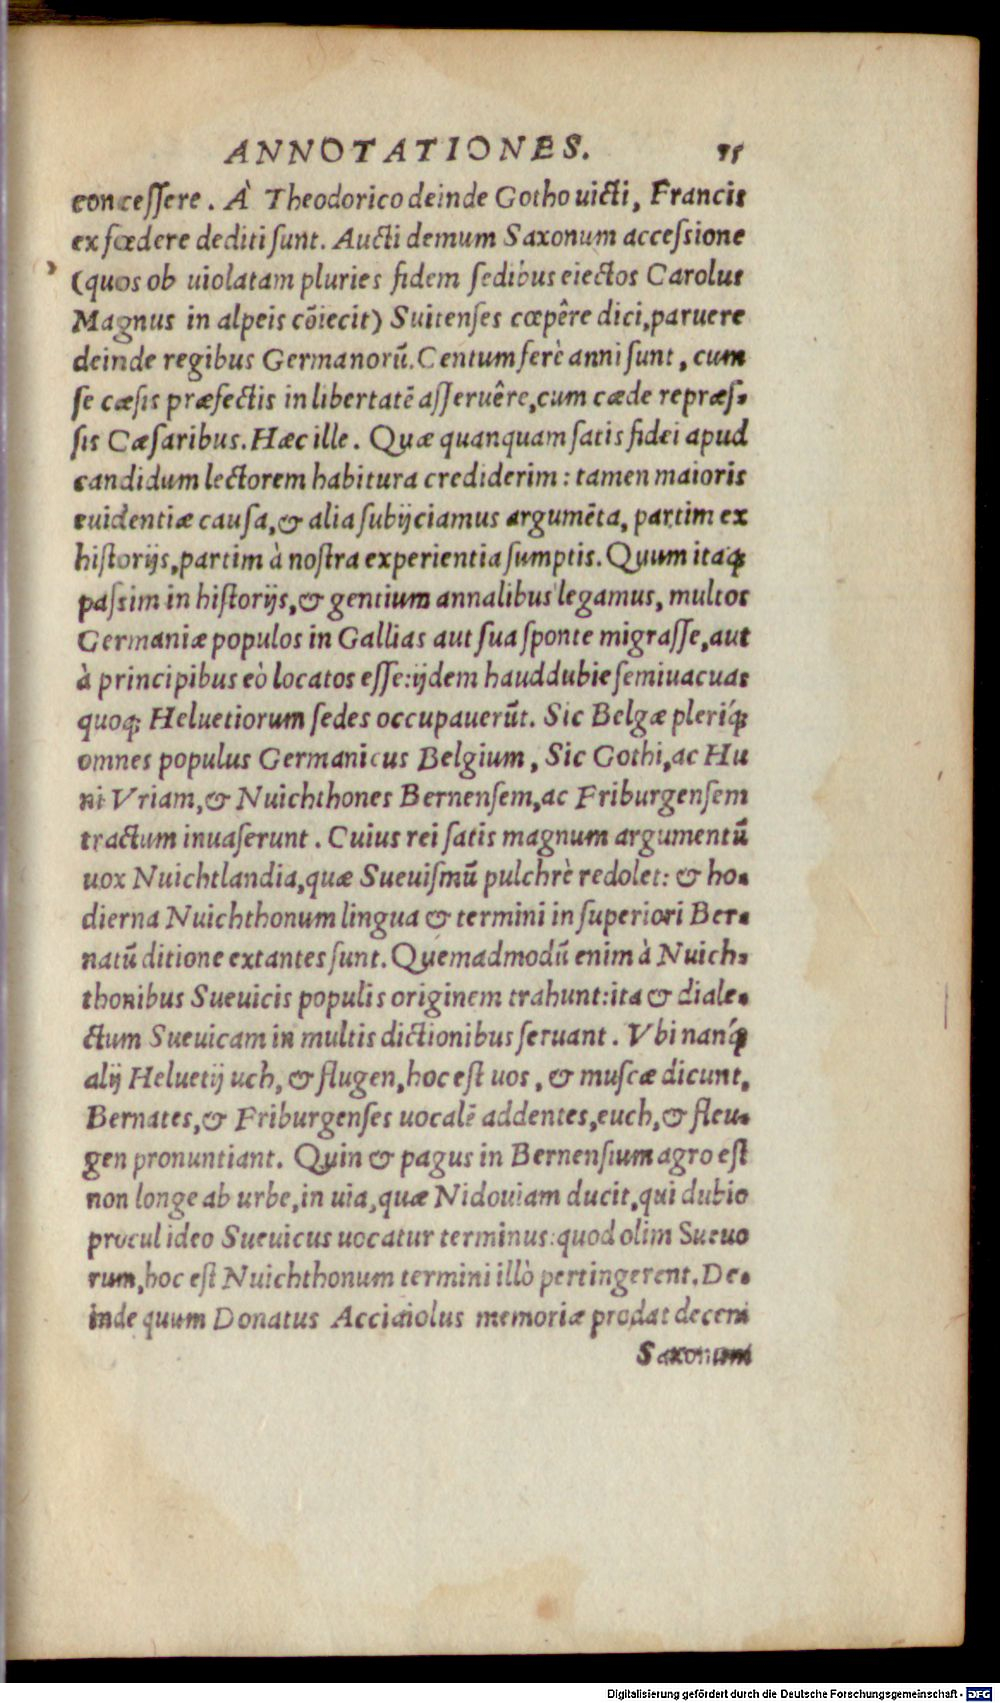 ANNOTATIONES. 75
concessere. À Theodorico deinde Gotho uicti, Francis
ex fœdere dediti sunt. Aucti demum Saxonum accessione
(quos ob uiolatam pluries fidem sedibus eiectos Carolus
Magnus in alpeis cōiecit) Suitenses cœpêre dici, paruere
deinde regibus Germanorū. Centum ferè anni sunt, cum
se cæsis præfectis in libertatē asseruêre, cum cæde repræs-
sis Cæsaribus. Hæc ille. Quæ quanquam satis fidei apud
candidum lectorem habitura crediderim: tamen maioris
euidentiæ causa, & alia subijciamus argumēta, partim ex
historijs, partim à nostra experientia sumptis. Quum itaq;
passim in historijs, & gentium annalibus legamus, multos
Germaniæ populos in Gallias aut sua sponte migrasse, aut
à principibus eò locatos esse: ijdem haud dubie semiuacuas
quoq; Heluetiorum sedes occupauerūt. Sic Belgæ pleríq;
omnes populus Germanicus Belgium, Sic Gothi, ac Hu
ni Vriam, & Nuichthones Bernensem, ac Friburgensem
tractum inuaserunt. Cuius rei satis magnum argumentū
uox Nuichtlandia, quæ Sueuismū pulchrè redolet: & ho-
dierna Nuichthonum lingua & termini in superiori Ber-
natū ditione extantes sunt. Quemadmodū enim à Nuich-
thonibus Sueuicis populis originem trahunt: ita & diale-
ctum Sueuicam in multis dictionibus seruant. Vbi nanq́;
alij Heluetij uch, & flugen, hoc est uos, & muscæ dicunt,
Bernates, & Friburgenses uocalē addentes, euch, & fleu-
gen pronuntiant. Quin & pagus in Bernensium agro est
non longe ab urbe, in uia, quæ Nidouiam ducit, qui dubio
procul ideo Sueuicus uocatur terminus: quod olim Sueuo
rum, hoc est Nuichthonum termini illò pertingerent. De-
inde quum Donatus Acciaiolus memoriæ prodat decem
Saxonum
Digitalisierung gefördert durch die Deutsche Forschungsgemeinschaft - DFG